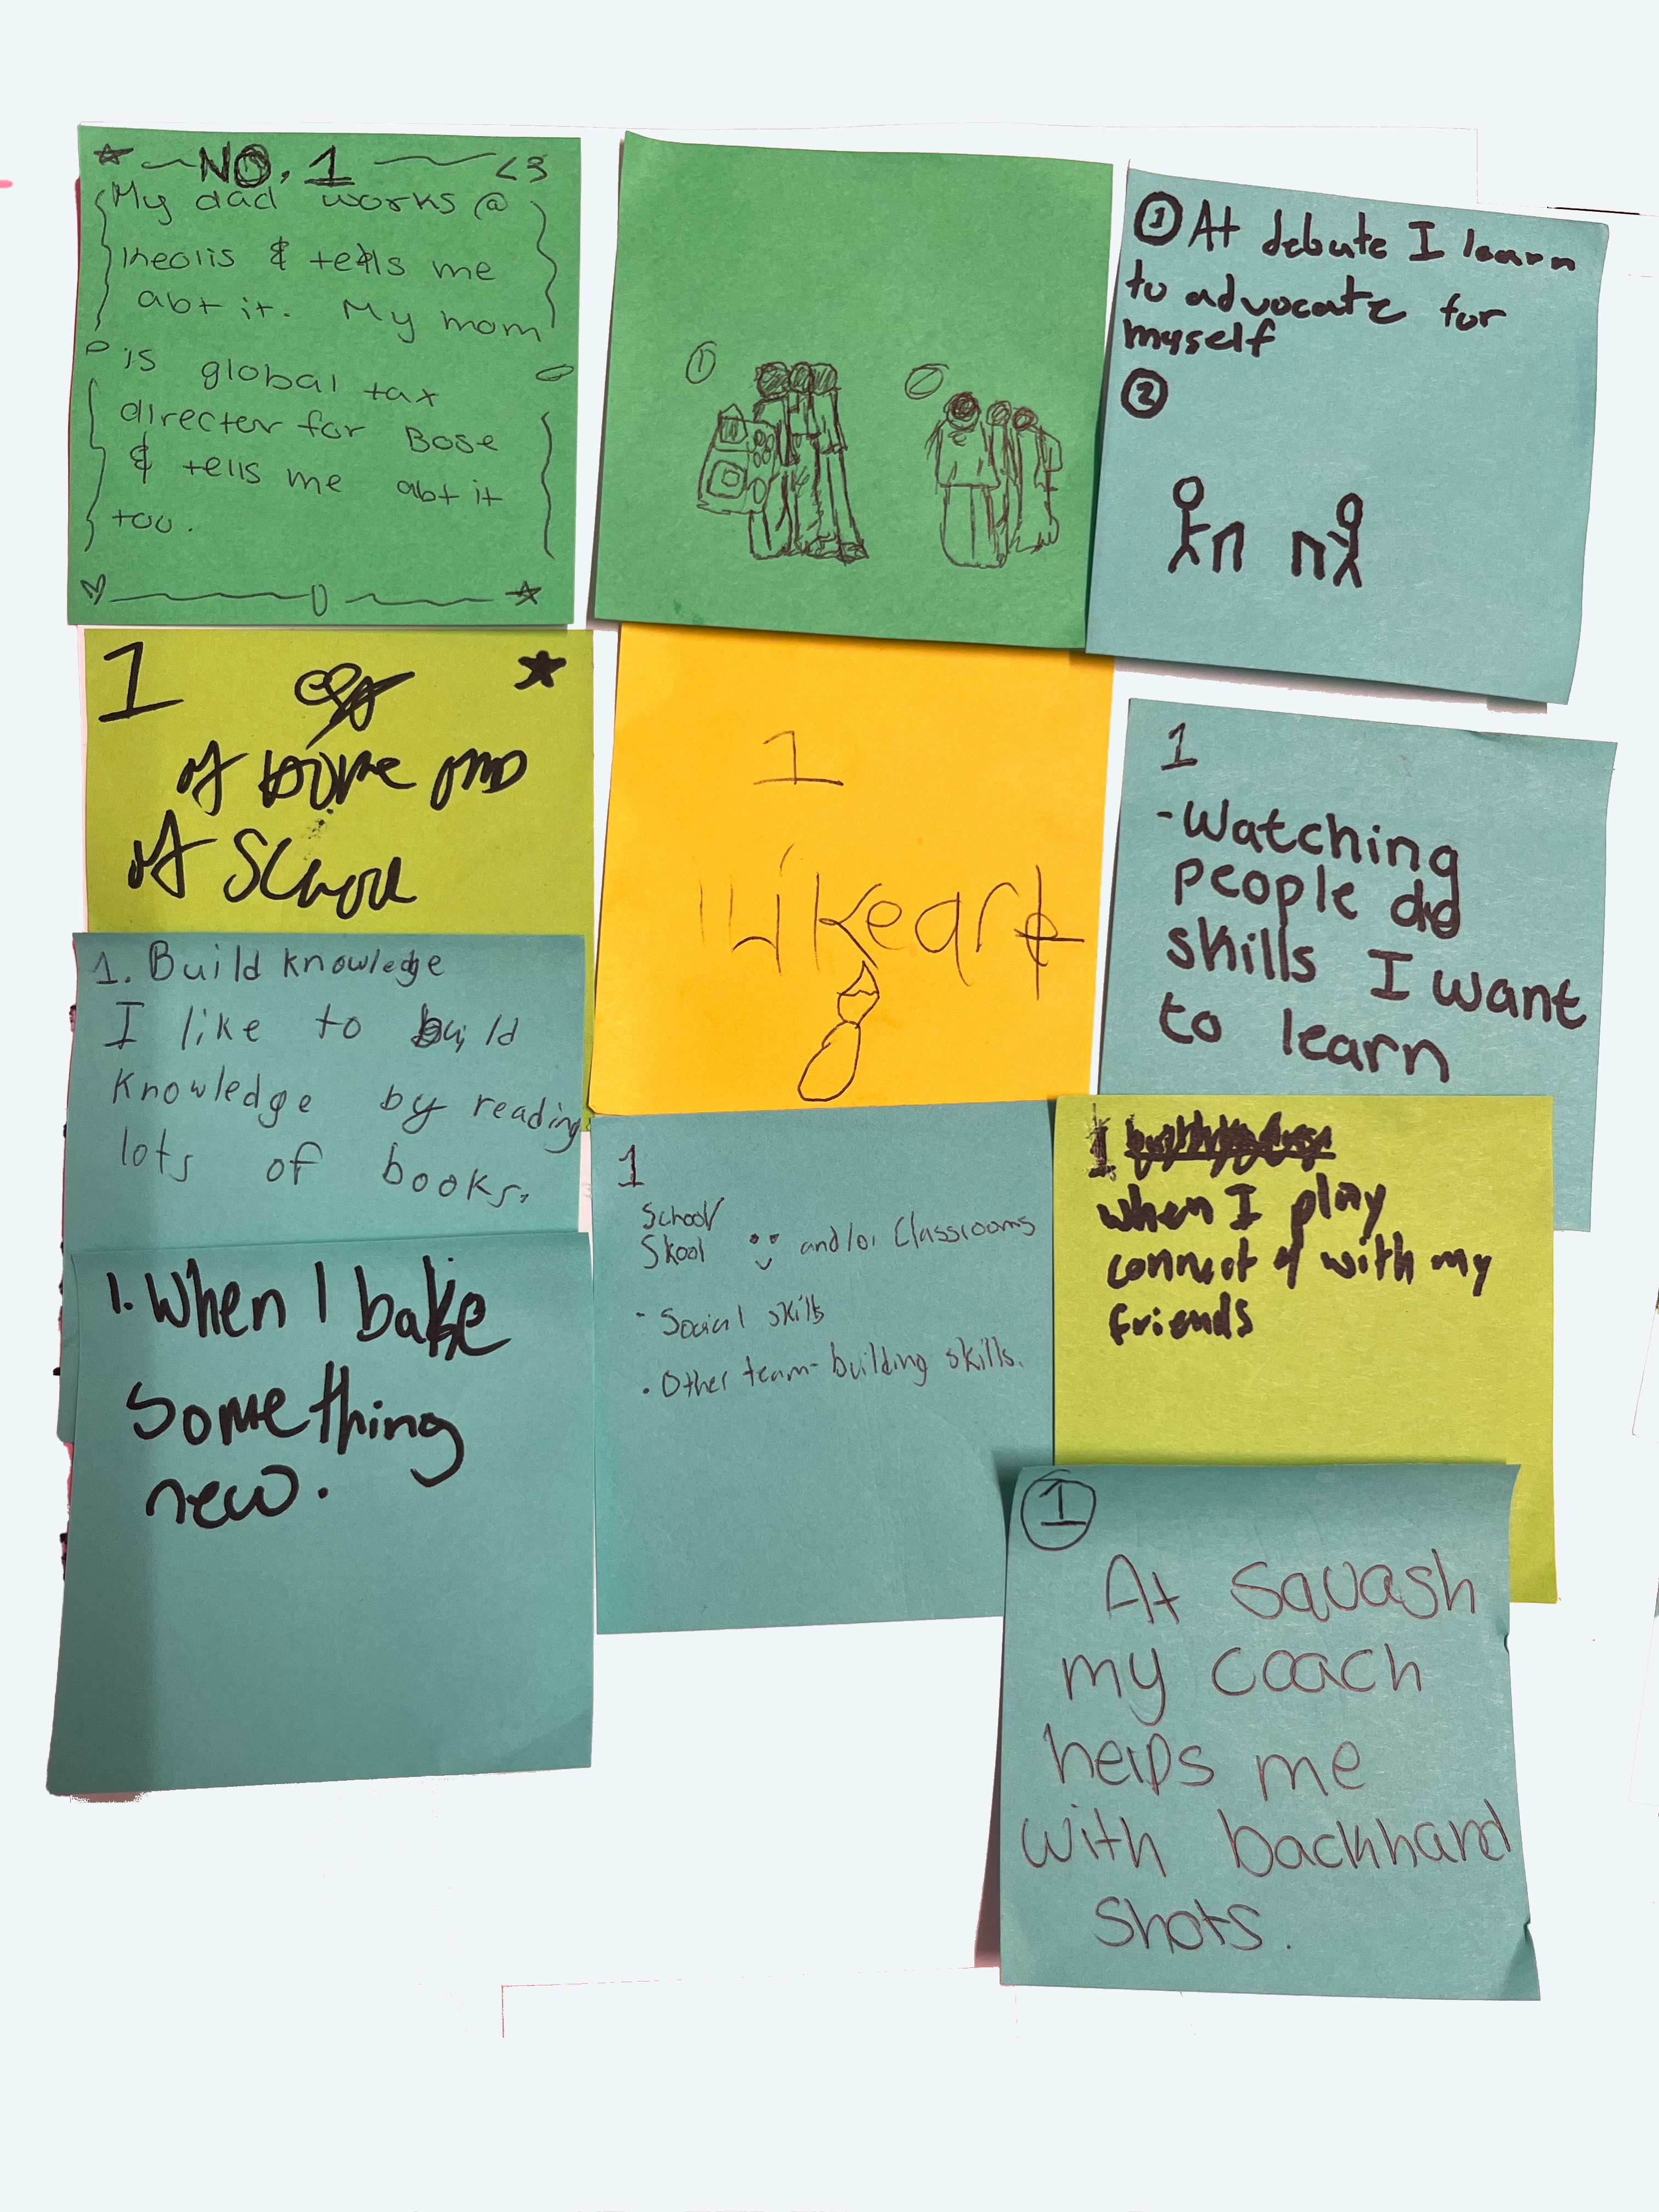 NO. 1 <3
My dad works @
Keolis & tells me
abt it. My mom
is global tax
directer for Bose
& tells me abt it
too.
① ②
① At debate I learn
to advocate for
myself
②
1
At home and
At School
1
I like art
1
- Watching
people do
skills I want
to learn
1. Build knowledge
I like to build
knowledge by reading
lots of books.
1
School
Skool and/or Classrooms
- Social skills
• Other team-building skills.
1
when I play
connect with my
friends
1. When I bake
something
new.
①
At Squash
my coach
helps me
with backhand
shots.